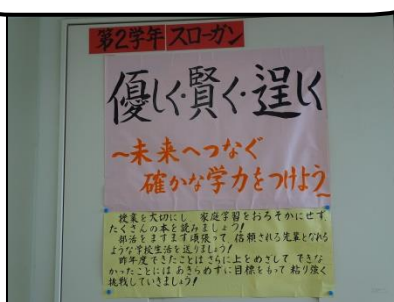 第2学年 スローガン
優しく・賢く・逞しく
～未来へつなぐ
確かな学力をつけよう～
授業を大切にし 家庭学習をおろそかにせず
たくさんの本を読みましょう!
部活をますます頑張って 信頼される先輩となれる
ような学校生活を送りましょう!
昨年度できたことはさらに上をめざして できな
かったことには あきらめずに目標をもって 粘り強く
挑戦していきましょう!